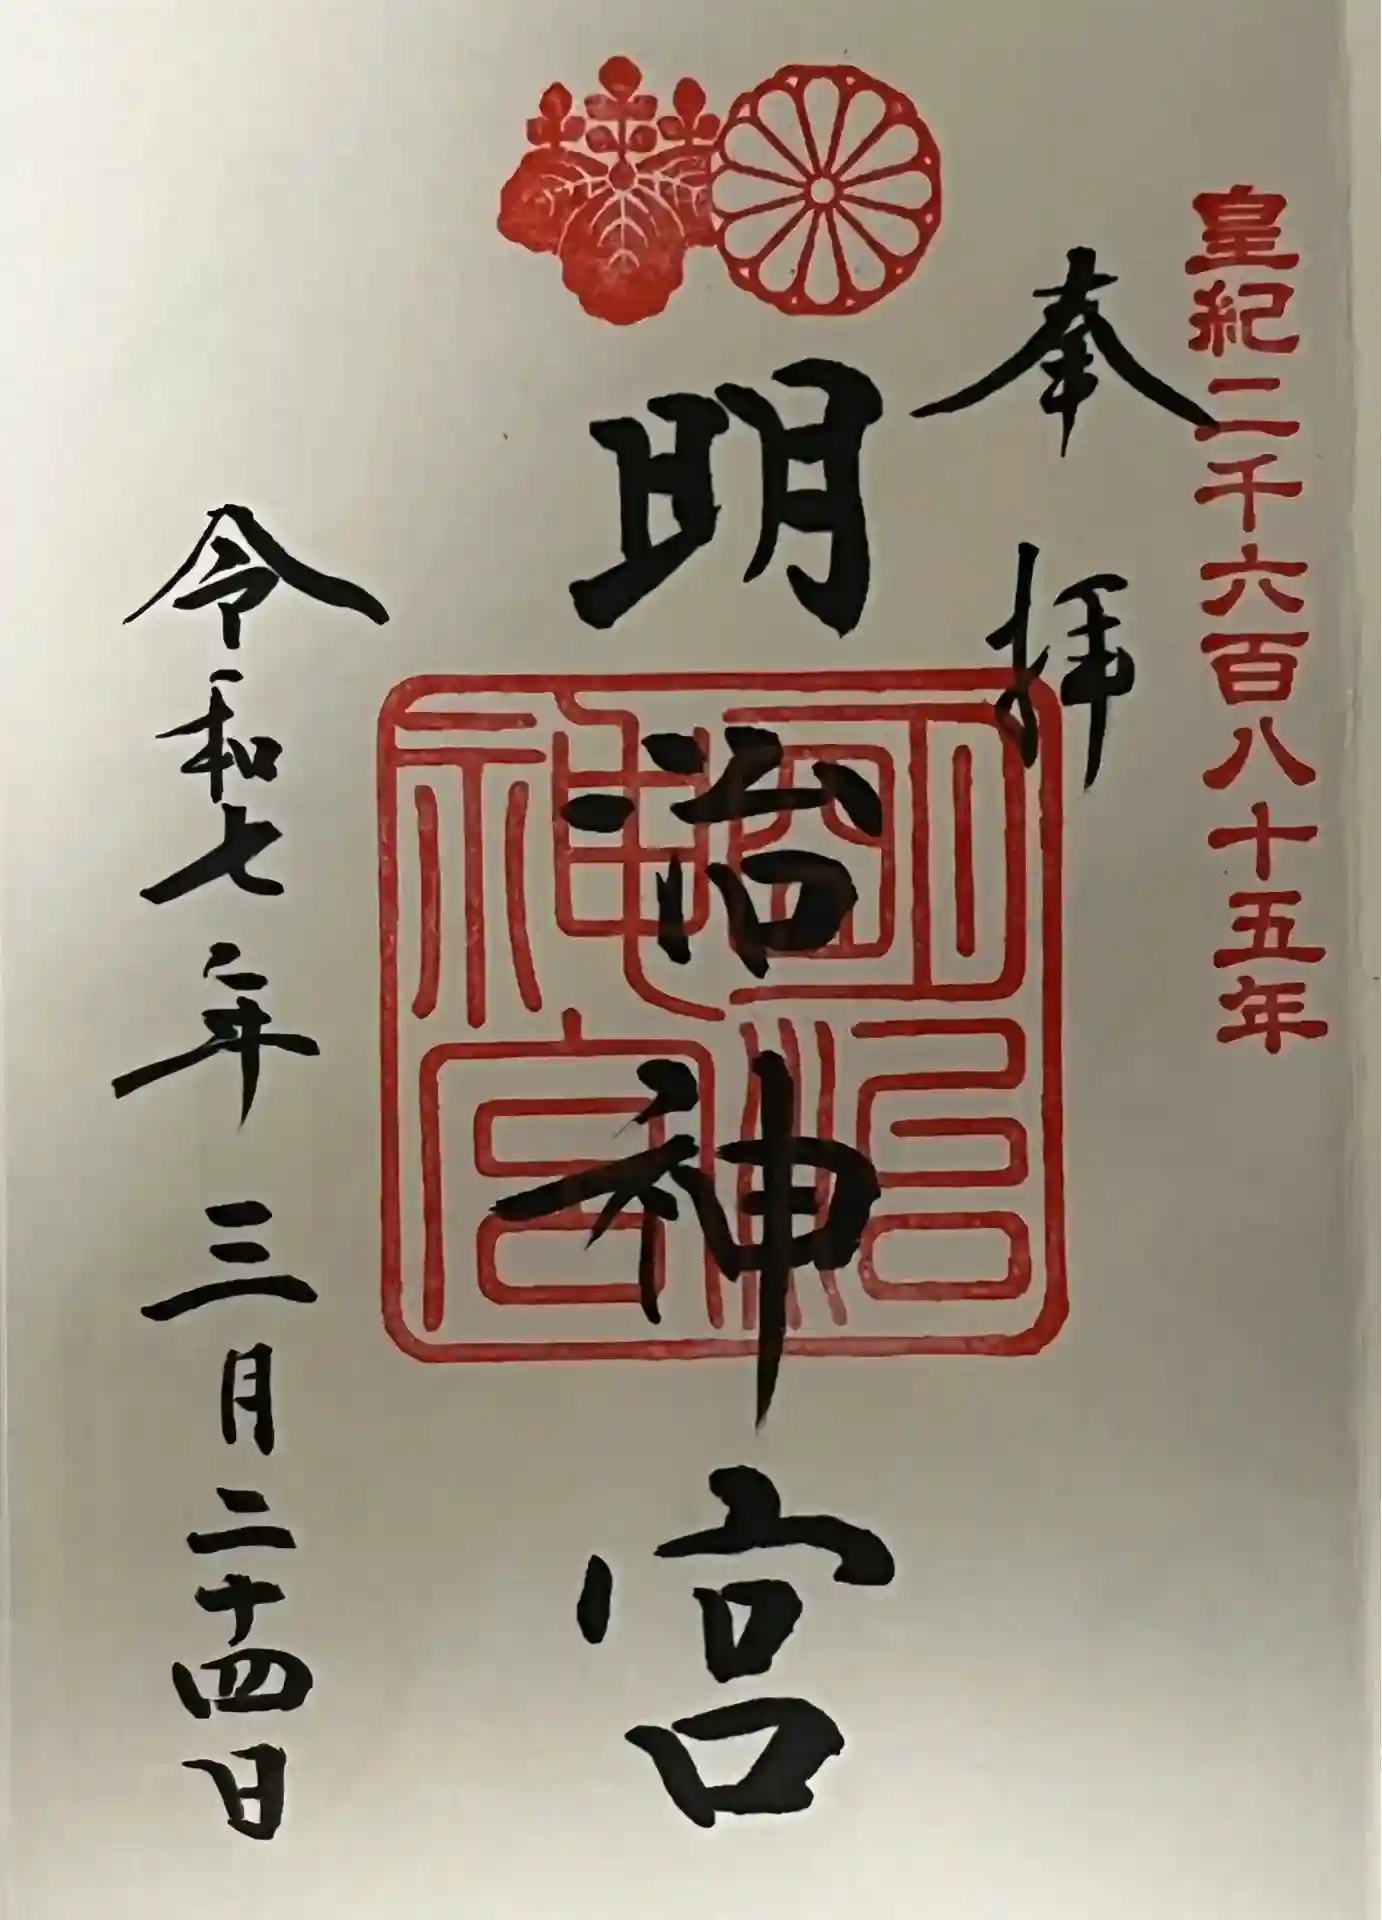 皇紀二千六百八十五年
奉拝
明治神宮
明治神宮
令和七年三月二十四日